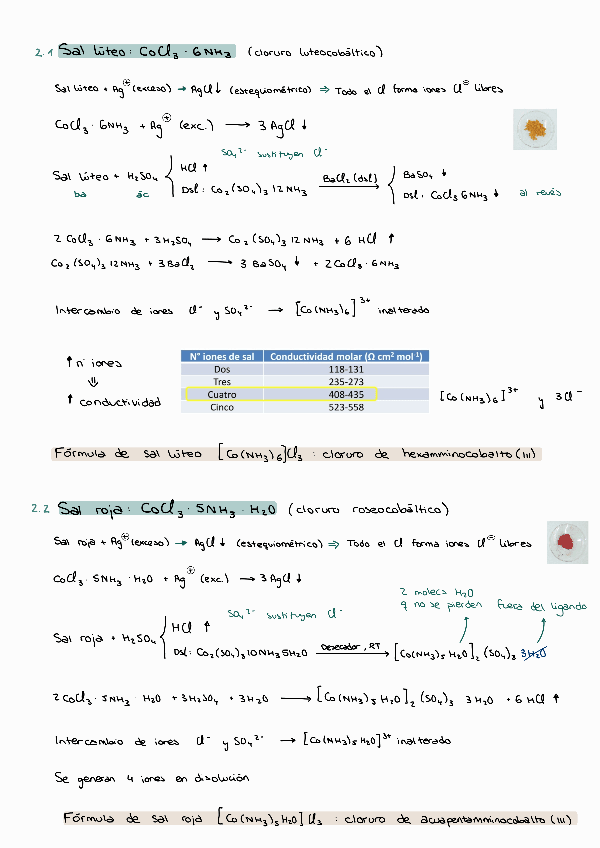 2.1 Sal lúteo: CoCl₃ · 6NH₃ (cloruro luteocobáltico)
Sal lúteo + Ag⊕ (exceso) → AgCl ↓ (estequiométrico) ⇒ Todo el Cl forma iones Cl⊖ libres
CoCl₃ · 6NH₃ + Ag⊕ (exc.) → 3 AgCl ↓
SO₄²⁻ sustituyen Cl⁻
Sal lúteo + H₂SO₄ { HCl ↑
Dsl: Co₂(SO₄)₃ 12NH₃ BaCl₂ (dsl) → { BaSO₄ ↓
Dsl: CoCl₃ 6NH₃ ↓ al revés
ba ác
2 CoCl₃ · 6NH₃ + 3H₂SO₄ → Co₂(SO₄)₃ 12NH₃ + 6 HCl ↑
Co₂(SO₄)₃ 12NH₃ + 3BaCl₂ → 3 BaSO₄ ↓ + 2CoCl₃ · 6NH₃
Intercambio de iones Cl⁻ y SO₄²⁻ → [Co(NH₃)₆]³⁺ inalterado
↑ nº iones
⇓
↑ conductividad
N° iones de sal Conductividad molar (Ω cm² mol⁻¹)
Dos 118-131
Tres 235-273
Cuatro 408-435
Cinco 523-558
[Co(NH₃)₆]³⁺ y 3Cl⁻
Fórmula de sal lúteo [Co(NH₃)₆]Cl₃ : cloruro de hexamminocobalto (III)
2.2 Sal roja: CoCl₃ · 5NH₃ · H₂O (cloruro roseocobáltico)
Sal roja + Ag⊕ (exceso) → AgCl ↓ (estequiométrico) ⇒ Todo el Cl forma iones Cl⊖ libres
CoCl₃ · 5NH₃ · H₂O + Ag⊕ (exc.) → 3 AgCl ↓
2 molecs H₂O
q no se pierden fuera del ligando
SO₄²⁻ sustituyen Cl⁻
Sal roja + H₂SO₄ { HCl ↑
Dsl: Co₂(SO₄)₃ 10NH₃ 5H₂O Desecador, RT → [Co(NH₃)₅ H₂O]₂ (SO₄)₃ 3H₂O
2 CoCl₃ · 5NH₃ · H₂O + 3H₂SO₄ + 3H₂O → [Co(NH₃)₅ H₂O]₂ (SO₄)₃ 3H₂O + 6 HCl ↑
Intercambio de iones Cl⁻ y SO₄²⁻ → [Co(NH₃)₅H₂O]³⁺ inalterado
Se generan 4 iones en disolución
Fórmula de sal roja [Co(NH₃)₅ H₂O] Cl₃ : cloruro de acuapentamminocobalto (III)